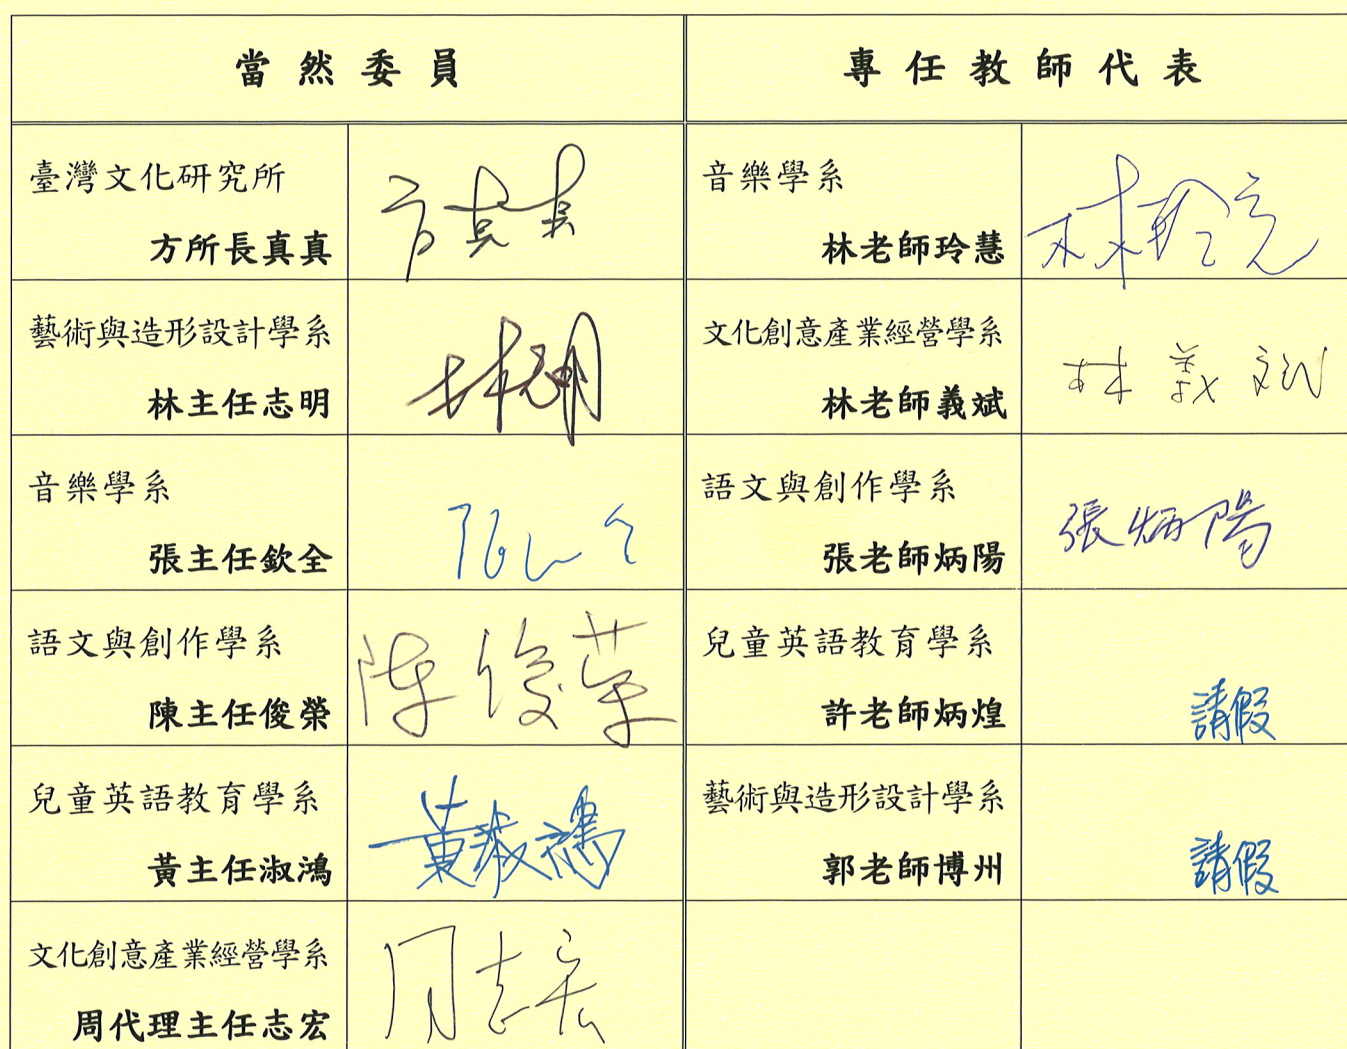 當然委員
專任教師代表
臺灣文化研究所
方所長真真
方真真
音樂學系
林老師玲慧
林玲
藝術與造形設計學系
林主任志明
林志明
文化創意產業經營學系
林老師義斌
林義斌
音樂學系
張主任欽全
語文與創作學系
張老師炳陽
張炳陽
語文與創作學系
陳主任俊榮
陳俊榮
兒童英語教育學系
許老師炳煌
請假
兒童英語教育學系
黃主任淑鴻
黃淑鴻
藝術與造形設計學系
郭老師博州
請假
文化創意產業經營學系
周代理主任志宏
周志宏